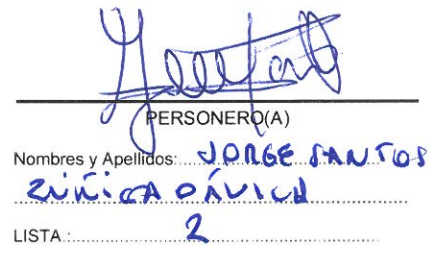 PERSONERO(A)
Nombres y Apellidos: JORGE SANTOS
ZUÑIGA DÁVILA
LISTA: 2